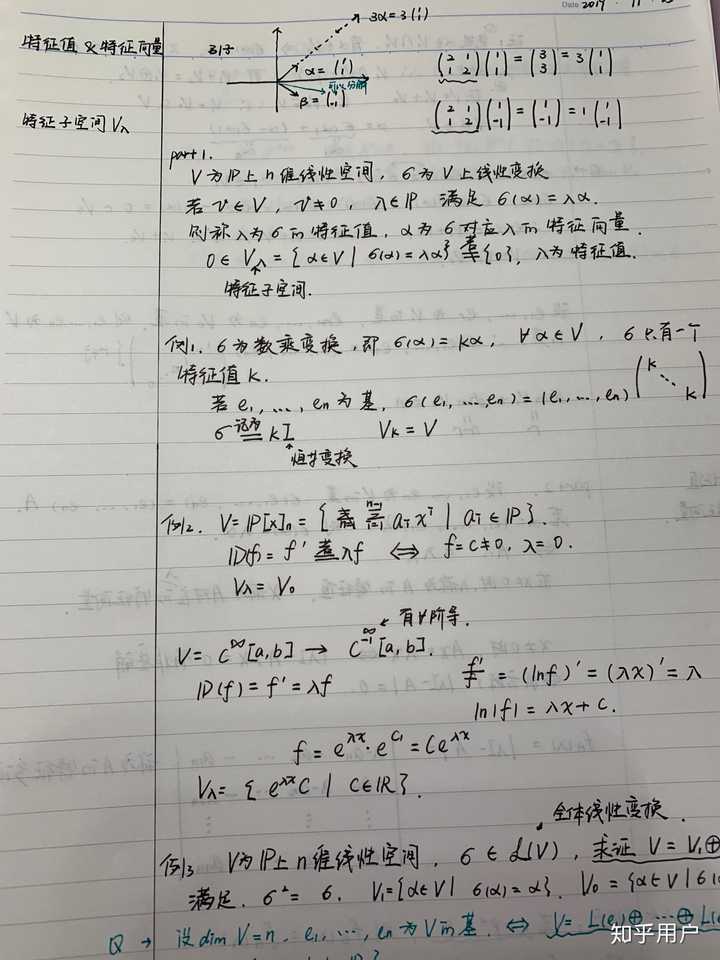 Date 2019 · 11 ·
特征值 & 特征向量
引子
3α = 3(1 1)
α = (1 1)
可以分解
β = (1 -1)
(2 1 1 2)(1 1) = (3 3) = 3(1 1)
(2 1 1 2)(1 -1) = (1 -1) = 1(1 -1)
特征子空间 Vλ
part 1.
V为P上n维线性空间, σ为V上线性变换
若 v∈V, v≠0, λ∈P 满足 σ(α) = λα.
则称λ为σ的特征值, α为σ对应λ的特征向量.
0 ∈ Vλ = {α∈V | σ(α) = λα} 若≠ {0}, λ为特征值.
特征子空间.
例1. σ为数乘变换, 即 σ(α) = kα, ∀α∈V, σ只有一个
特征值 k.
若 e1, …, en 为基, σ(e1, …, en) = (e1, …, en) (k ⋱ k)
σ 记为= kI Vk = V
恒等变换
例2. V = P[x]n = { Σ n-1 ai x^i | ai∈P }.
D(f) = f' = λf ⟺ f = c ≠ 0, λ = 0.
Vλ = V0
← 有∀阶导.
V = C^∞[a,b] → C^∞[a,b].
D(f) = f' = λf
f'/f = (ln f)' = (λx)' = λ
ln|f| = λx + C.
f = e^λx · e^C1 = Ce^λx
Vλ = { e^λx C | C∈R }.
全体线性变换.
例3 V为P上n维线性空间, σ ∈ L(V), 求证 V = V1 ⊕
满足. σ² = σ. V1 = {α∈V | σ(α) = α}. V0 = {α∈V | σ(
Q → 设 dim V = n. e1, …, en 为V的基. ⟺ V = L(e1) ⊕ … ⊕ L(e
知乎用户